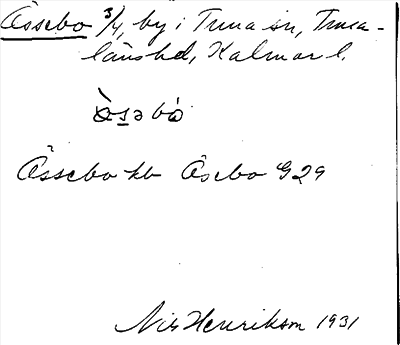 Åssebo 3/4, by i Tuna sn, Tuna-
läns hd, Kalmar l.
Åssebo kb Åsebo G29
Nils Henrikson 1931